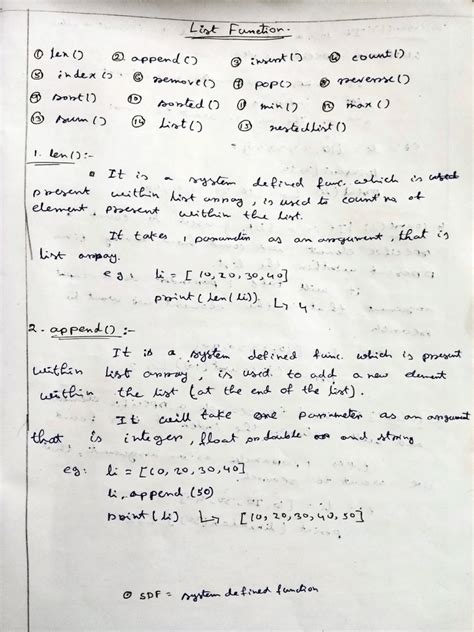 List Function.
① len() ② append() ③ insert() ④ count()
⑤ index() ⑥ remove() ⑦ pop() ⑧ reverse()
⑨ sort() ⑩ sorted() ⑪ min() ⑫ max()
⑬ sum() ⑭ list() ⑮ nestedlist()
1. len():-
It is a system defined func. which is
present within list array, is used to count no of
element, present within the list.
It takes 1 parameter as an argument, that is
list array.
eg: li = [10,20,30,40]
print(len(li)) ↳ 4.
2. append() :-
It is a system defined func. which is present
within list array, is used to add a new element
within the list (at the end of the list).
It will take one parameter as an argument
that is integer, float or double and string
eg: li = [10,20,30,40]
li.append(50)
print(li) ↳ [10,20,30,40,50]
⊙ SDF = system defined function